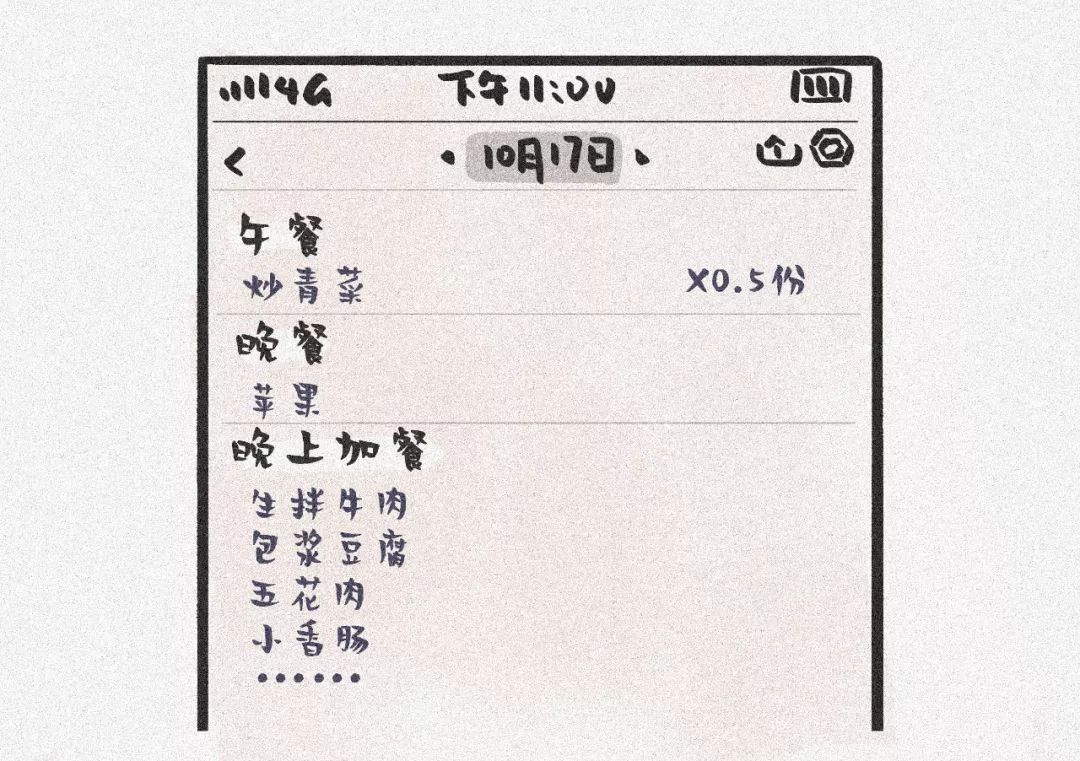 4G 下午11:00
10月17日
午餐
炒青菜 X0.5份
晚餐
苹果
晚上加餐
生拌牛肉
包浆豆腐
五花肉
小香肠
••••••